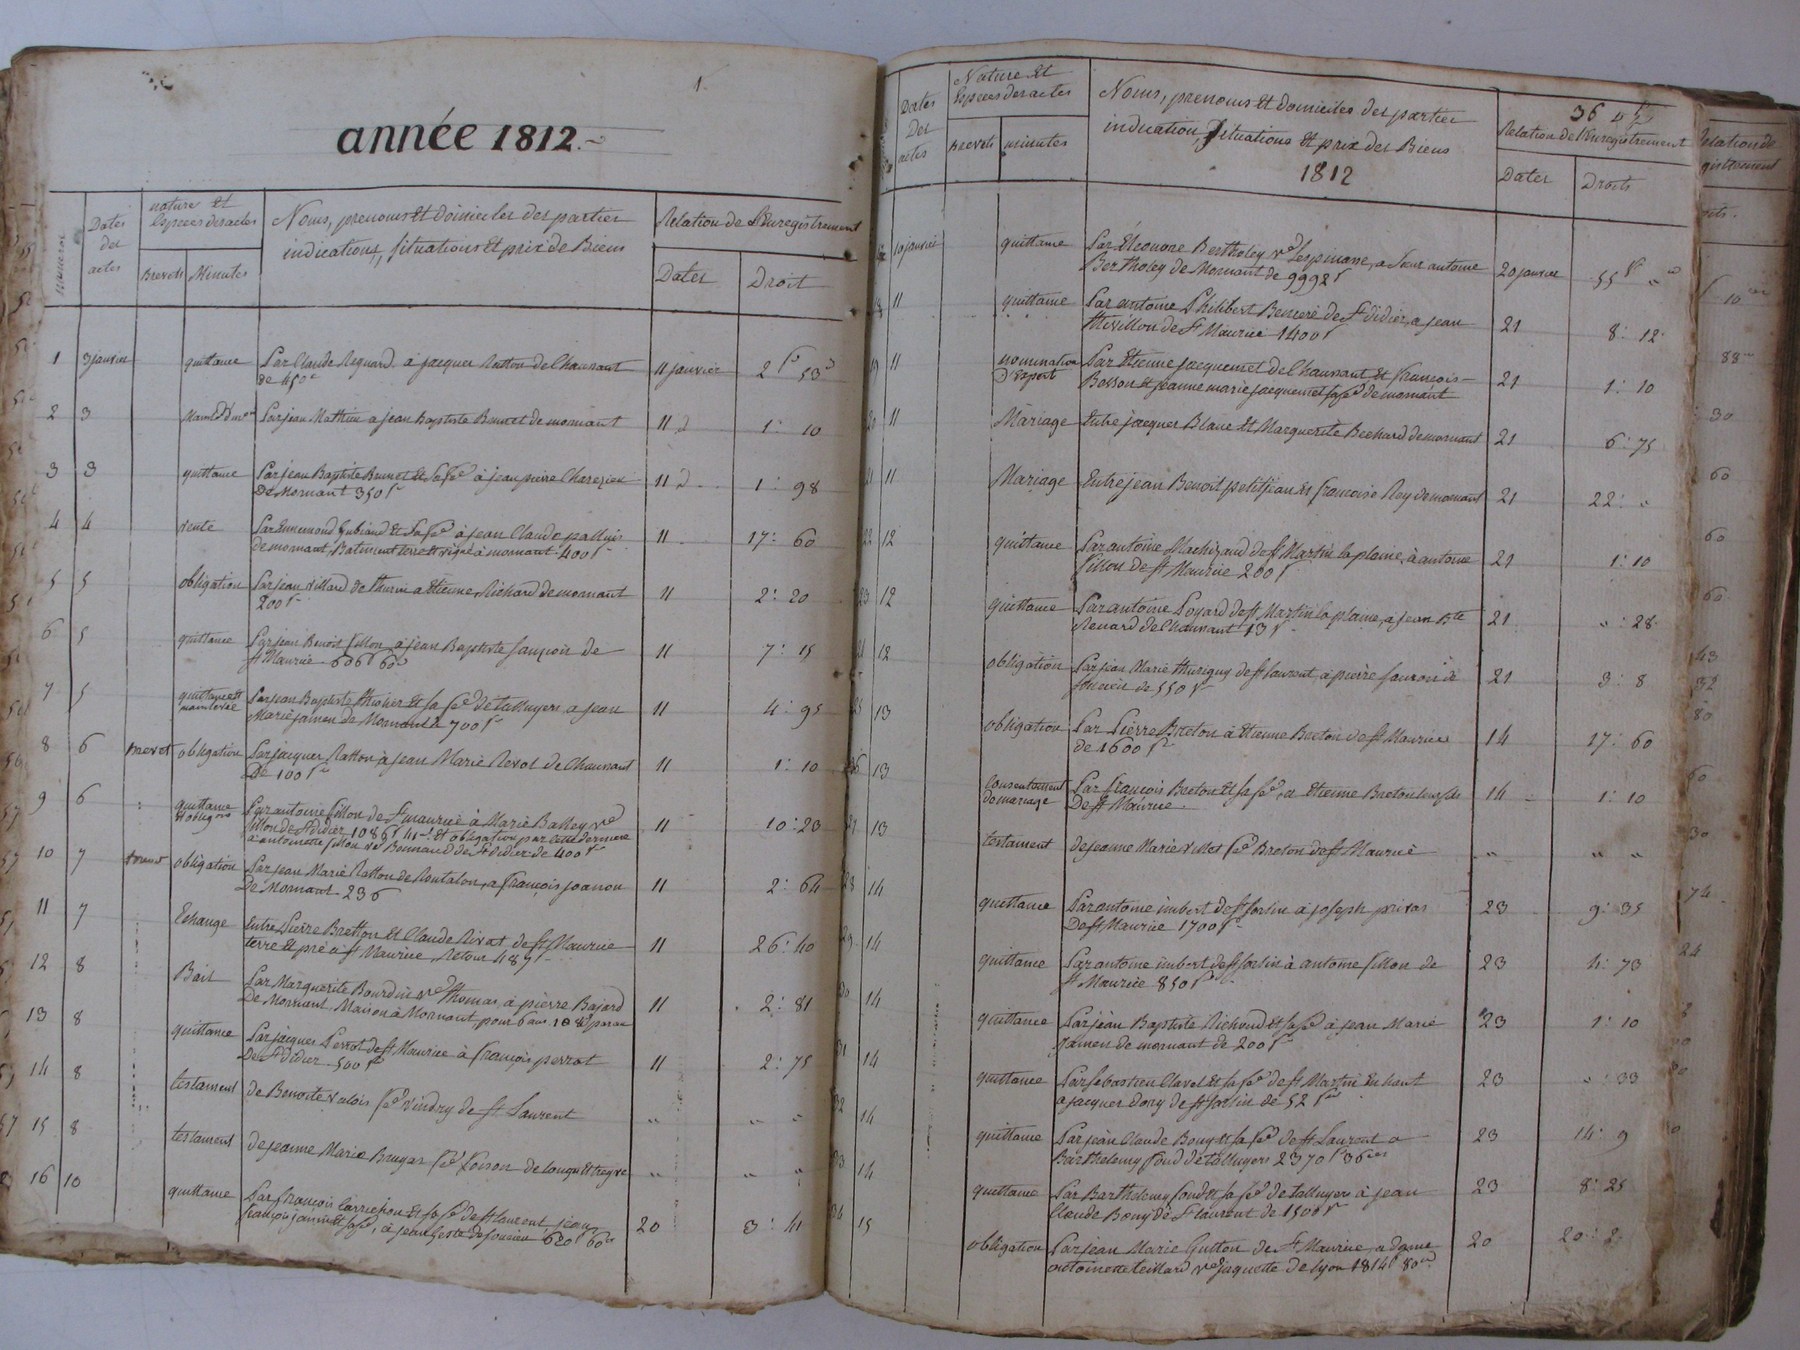 année 1812.
numeros
Dates
des
actes
nature et
Especes des actes
Brevets Minutes
Noms, prenoms et domiciles des parties
indications, situations et prix de Biens
Relation de L'Enregistrement
Dates Droit
1 3 janvier quittance Par Claude à jacques Ratton de Chaussant 11 janvier 2 f 53
de 450
2 3 Par jean Mathieu a jean Baptiste Brunet de mornant 11 1: 10
3 3 quittance Par jean Baptiste Brunet et sa fe à jean pierre 11 1: 98
De Mornant 350 f
4 4 vente Par Ennemond et sa fe à jean Claude 11 17: 60
de mornant, Batiment terre et vigne à mornant 400 f
5 5 obligation Par jean Villard de thurin a Etienne Richard de mornant 11 2: 20
200 f
6 5 quittance Par jean Benoit fillon a jean Baptiste de 11 7: 15
St Maurice 606 f 60
7 5 quittance et Par jean Baptiste et sa fe de taluyers a jean 11 4: 95
mainlevée Marie jamen de Mornant 700 f
8 6 Brevet obligation Par jacques Ratton, a jean Marie Revol de Chaussant 11 1: 10
De 100 f
9 6 quittance Par antoine fillon de St maurice à Marie ve 11 10: 23
et oblig fillon de St didier 1086 f et obligation par cette derniere
a antoinette fillon ve Bonnand de St didier de 400 f
10 7 brevet obligation Par jean Marie Ratton de Rontalon, a françois joanon 11 2: 64
De Mornant 236
11 7 Echange Entre Pierre Bretton et Claude Rivat de St Maurice 11 26: 40
terre et pré a St Maurice, Retour 487 f
12 8 Bail Par Marguerite Bourdin ve thomas, à pierre Bajard 11 2: 81
De Mornant Maison à Mornant, pour 6 ans par an
13 8 quittance Par jacques Perrot de St Maurice à françois perrot 11 2: 75
De St didier 500 f
14 8 testament de Benoite Valois fe de St Laurent " " "
15 8 testament de jeanne Marie Bruyas fe " " "
16 10 quittance Par françois et sa fe de St laurent jean 20 3: 41
françois et sa fe, à jean de Soucieu 620 f 60
Dates
Des
actes
Nature Et
Especes des actes
Brevets minutes
Noms, prenoms Et domiciles des parties
indication, Situations Et prix des Biens
1812
36
Relation de l'Enregistrement
Dates Droits
10 janvier quittance Par Eleonore Bertholey ve Lespinasse, a Sieur antoine 20 janvier 55 f "
Bertholey de Mornant de 9992 f
18 11 quittance Par antoine Philibert de St didier, a jean 21 8: 12
Thivillon de St Maurice 1400 f
19 11 nomination Par Etienne jacquemet de Chaussant Et françois 21 1: 10
D'Expert Besson Et jeanne marie jacquemet sa fe de mornant
20 11 Mariage Entre jacques Blanc Et Marguerite Bechard de mornant 21 6: 75
21 11 Mariage Entre jean Benoit petitjean Et françoise Rey de mornant 21 22: "
22 12 quittance Par antoine de St Martin la plaine, à antoine 21 1: 10
fillon de St Maurice 200 f
23 12 quittance Par antoine Poyard de St Martin la plaine, a jean Bte 21 ": 28
Renard de Chaussant 13 f
12 obligation Par jean Marie thurigny de St laurent, a pierre de 21 3: 8
Soucieu de 550 f
25 13 obligation Par Pierre Breton à Etienne Breton de St Maurice 14 17: 60
de 1600 f
26 13 Consentement Par françois Breton Et sa fe, a Etienne Breton leur fils 14 1: 10
de mariage De St Maurice
27 13 testament de jeanne Marie Villet fe Breton de St Maurice " " "
28 14 quittance Par antoine imbert de St Sorlin à joseph privas 23 9: 35
De St Maurice 1700 f
29 14 quittance Par antoine imbert de St Sorlin à antoine fillon de 23 4: 73
St Maurice 850 f
30 14 quittance Par jean Baptiste Richoud Et sa fe à jean Marie 23 1: 10
jamen de mornant de 200 f
31 14 quittance Par Sebastien Clavel Et sa fe de St Martin En haut 23 ": 33
a jacques de St Sorlin de 52 f
32 14 quittance Par jean Claude Bony Et sa fe de St Laurent a 23 14: 9
Barthelemy fond de talluyers 2370 f 36
33 14 quittance Par Barthelemy fond Et sa fe de talluyers à jean 23 8: 25
Claude Bony de St laurent de 1500 f
34 15 obligation Par jean Marie Gutton de St Maurice, a dame 20 20: 2
antoinette teillard ve de lyon 1814 f 80
Relation de
gistrement
10
88
30
60
60
60
43
32
80
60
30
74
24